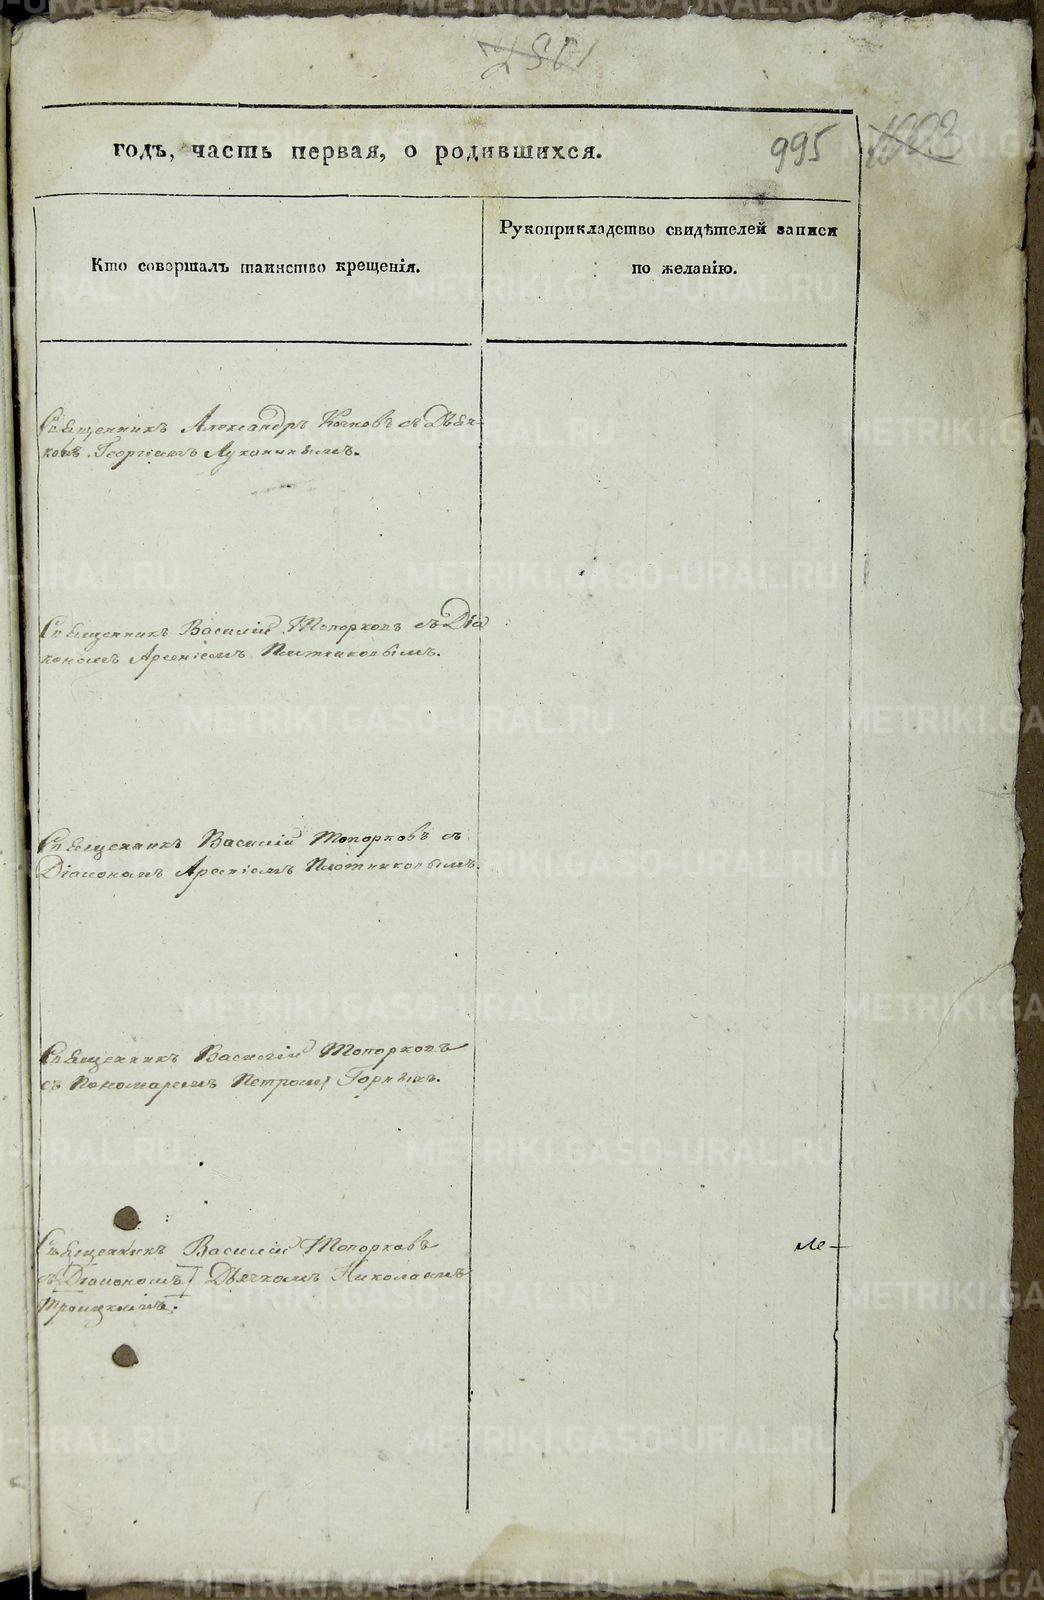 годъ, часть первая, о родившихся.
995
1003
Рукоприкладство свидѣтелей записи
по желанію.
Кто совершалъ таинство крещенія.
Священникъ Александръ с Дьяч-
комъ Георгіемъ
Священникъ Василій Топорковъ съ Діа
кономъ Арсеніемъ Плотниковымъ.
Священникъ Василій Топорковъ съ
Діакономъ Арсеніемъ Плотниковымъ.
Священникъ Василій Топорковъ
съ Пономаремъ Петромъ
Священникъ Василій Топорковъ
съ Діакономъ Дьячкомъ Николаемъ
Троицкимъ.
METRIKI.GASO-URAL.RU